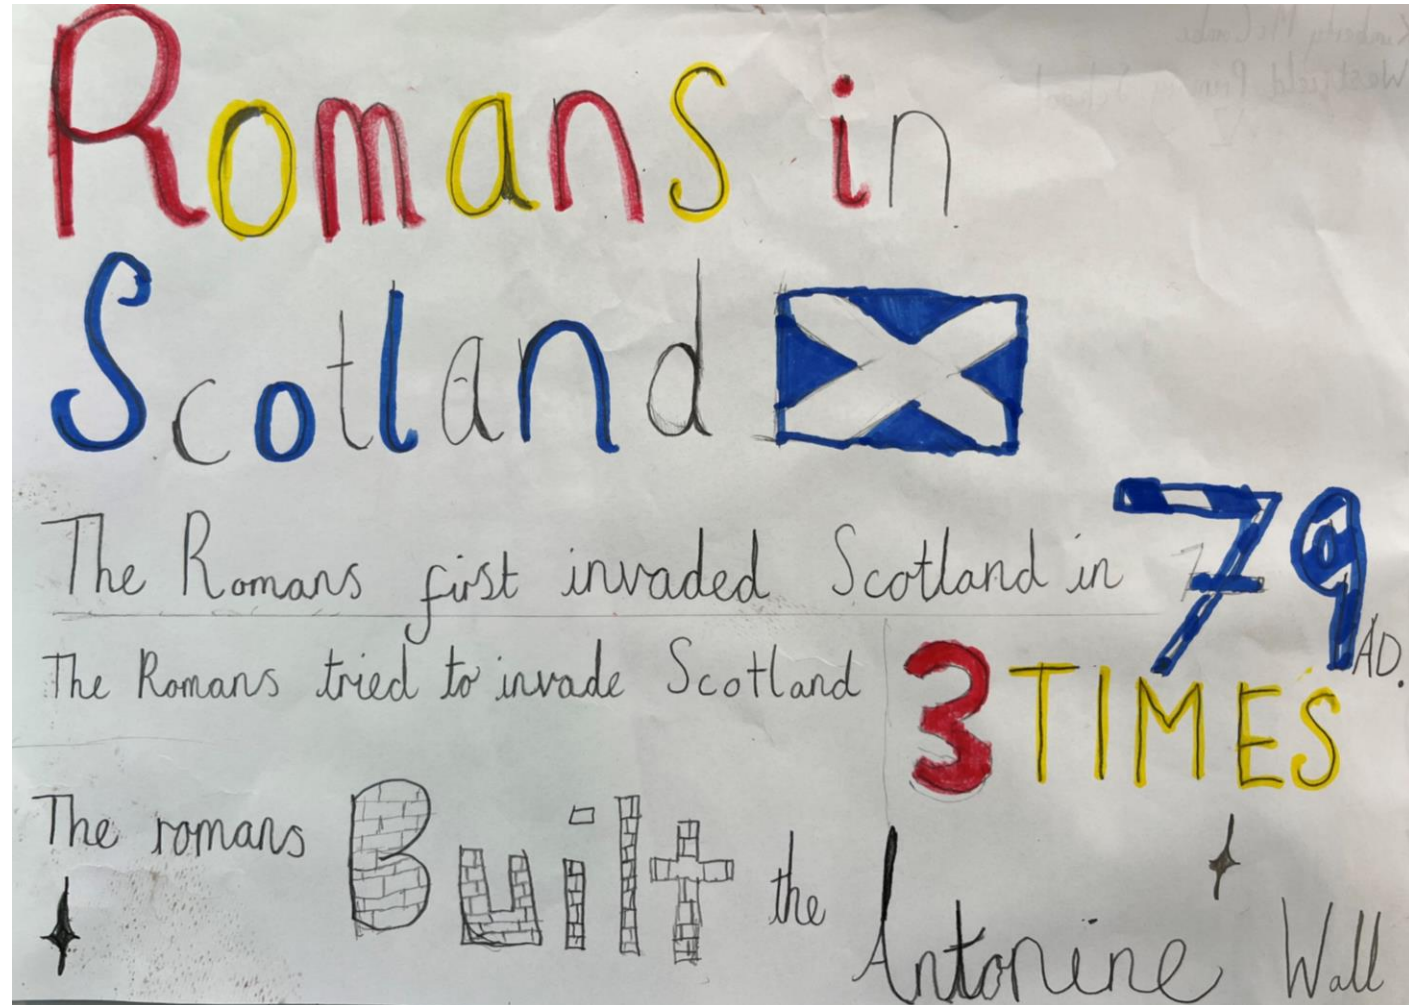 Romans in
Scotland
The Romans first invaded Scotland in 79 AD.
The Romans tried to invade Scotland 3 TIMES
The romans Built the Antonine Wall